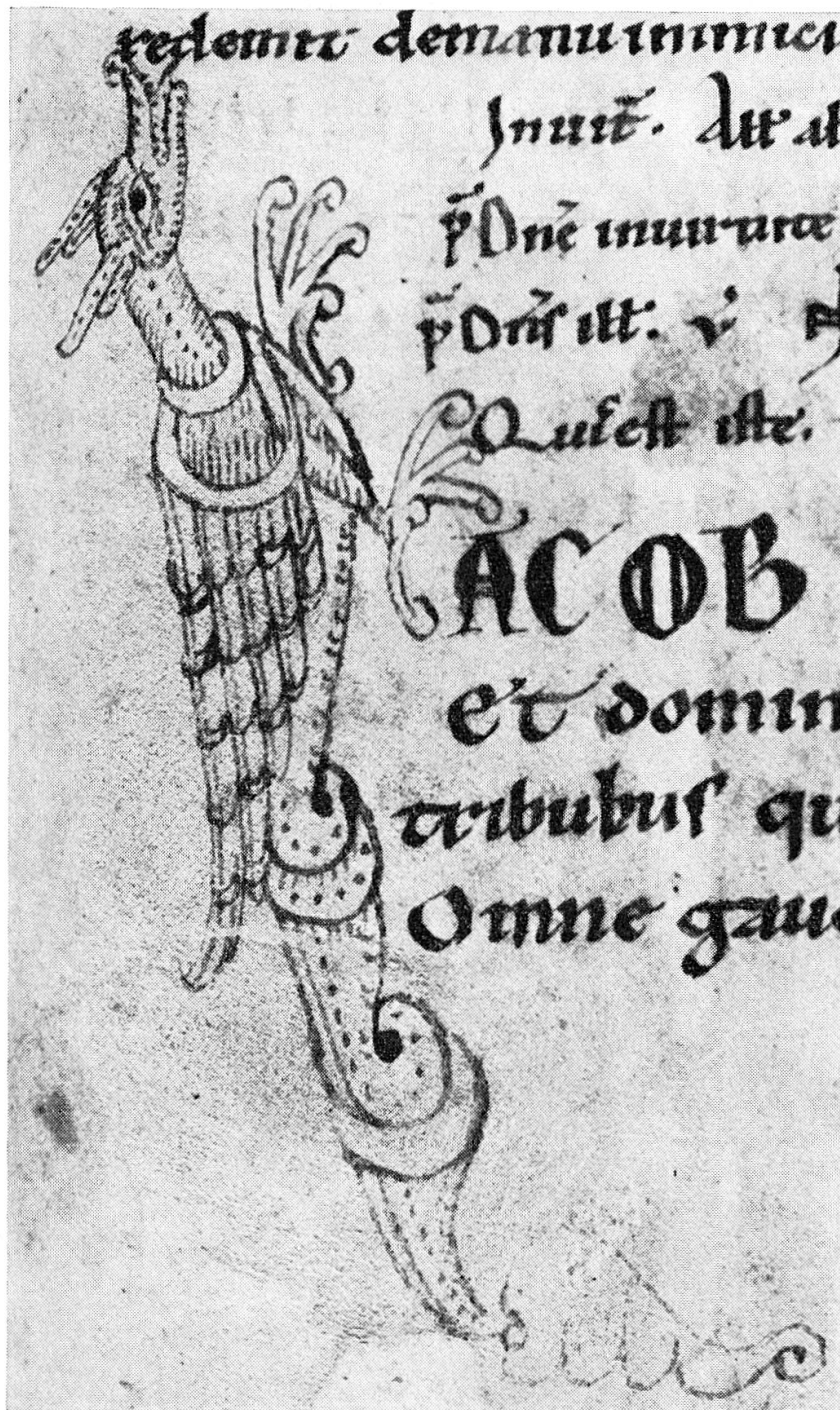 redemit demanu inimici
Inuit̄. Att al
p̄ Dnē inuirtute
p̄ Dn̄s ill. v
Quis est iste.
ACOB
et domin
tribubus qu
Omne gau